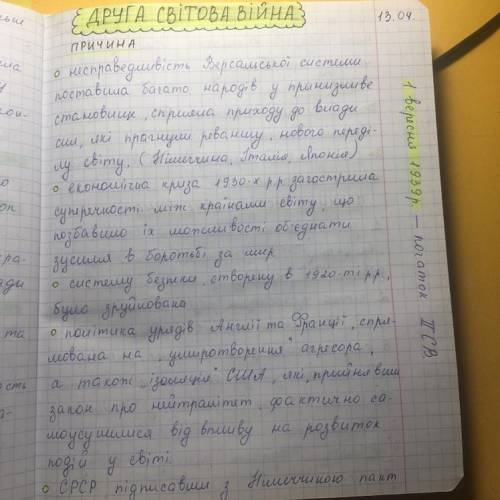 ДРУГА СВІТОВА ВІЙНА
13.04.
ПРИЧИНА
несправедливість Версальської системи
поставила багато народів у принизливе
становище, сприяла приходу до влади
сил, які прагнули реваншу, нового переді-
лу світу. (Німеччина, Італія, Японія)
економічна криза 1930-х рр загострила
суперечності між країнами світу, що
позбавило їх можливості об'єднати
зусилля в боротьбі за мир
систему безпеки, створену в 1920-ті рр,
було зруйновано
політика урядів Англії та Франції, спря-
мована на "умиротворення" агресора,
а також ізоляція США, які, прийнявши
закон про нейтралітет, фактично са-
моусушилися від впливу на розвиток
подій у світі.
СРСР підписавши з Німеччиною пакт
1 вересня 1939р. — початок ІІСВ